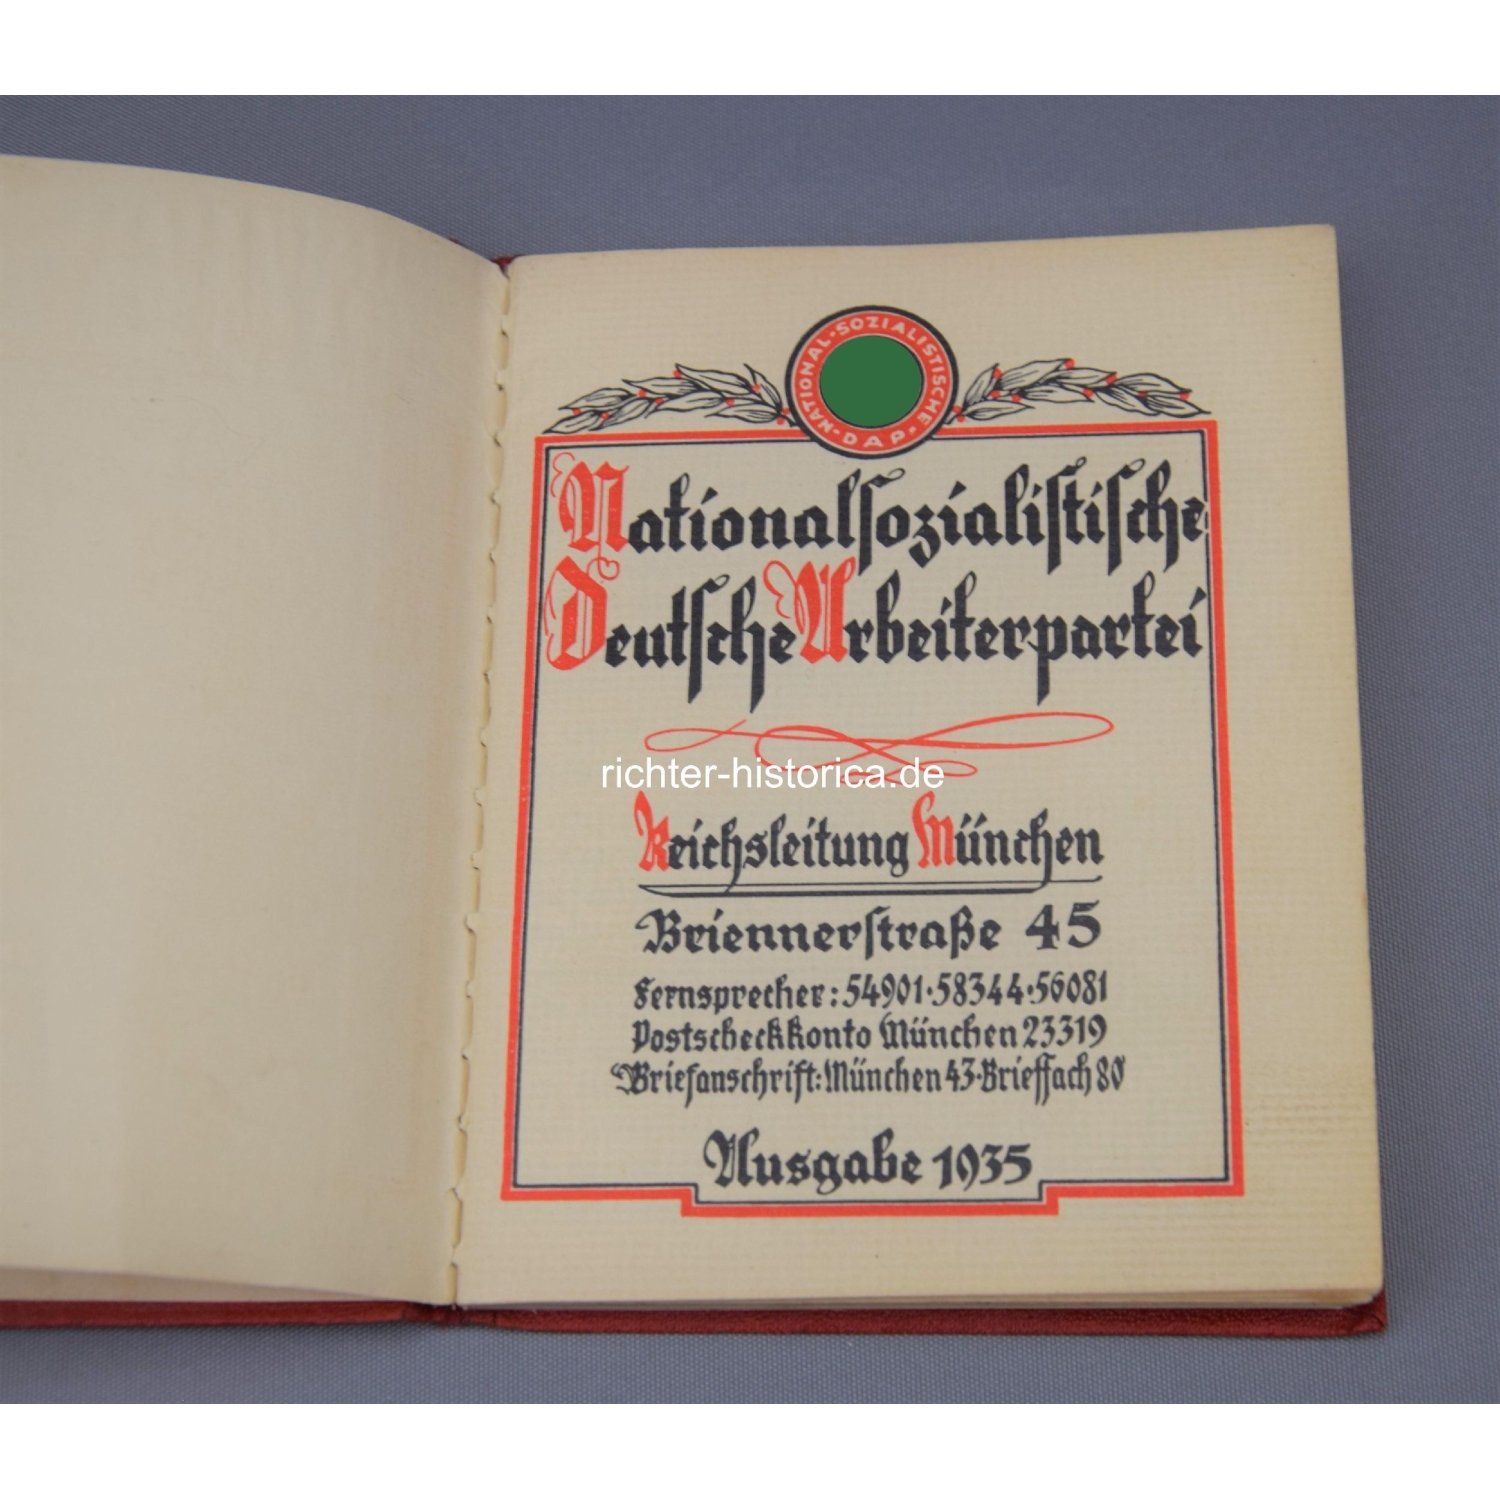 NATIONAL-SOZIALISTISCHE
D A P
Nationalsozialistische
Deutsche Arbeiterpartei
richter-historica.de
Reichsleitung München
Briennerstraße 45
Fernsprecher: 54901·58344·56081
Postscheckkonto München 23319
Briefanschrift: München 43·Brieffach 80
Ausgabe 1935